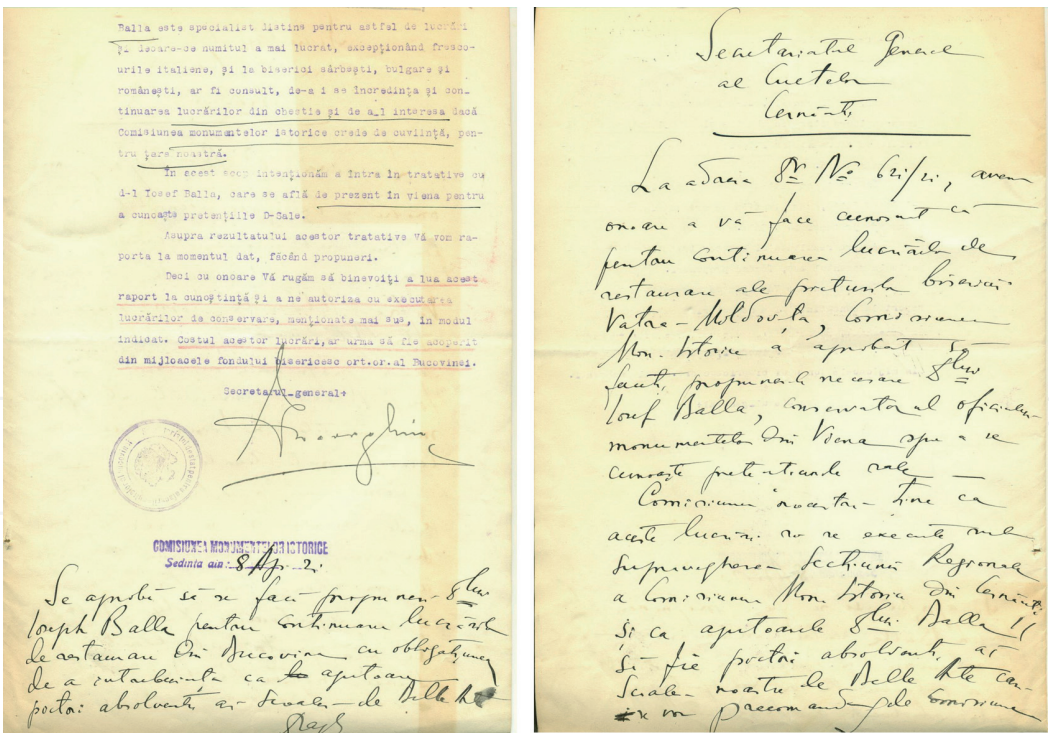 Balla este specialist distins pentru astfel de lucrări
și deoare-ce numitul a mai lucrat, excepționând fresco-
urile italiene, și la biserici sârbești, bulgare și
românești, ar fi consult, de-a i se încredința și con-
tinuarea lucrărilor din chestie și de a_l interesa dacă
Comisiunea monumentelor istorice crede de cuviință, pen-
tru țare noastră.
În acest scop intenționăm a întra în tratative cu
d-l Iosef Balla, care se află de prezent în viena pentru
a cunoaște pretențiile D-Sale.
Asupra rezultatului acestor tratative Vă vom ra-
porta la momentul dat, făcând propuneri.
Deci cu onoare Vă rugăm să binevoiți a lua acest
raport la cunoștință și a ne autoriza cu executarea
lucrărilor de conservare, menționate mai sus, în modul
indicat. Costul acestor lucrări, ar urma să fie acoperit
din mijloacele fondului bisericesc ort.or.al Bucovinei.
Secretarul general
COMISIUNEA MONUMENTELOR ISTORICE
Sedinta din: 8 Apr 21
Se aprobă să se facă propuneri
Ioseph Balla pentru continuarea lucrărilor
de restaurare din Bucovina cu obligațiunea
de a întrebuința ca ajutoare
pictori absolvenți ai Școalei de Belle Arte
Secretariatul General
al Cultelor
Cernăuți
La adresa No 621/21, avem
onoare a vă face cunoscut că
pentru continuarea lucrărilor de
restaurare ale picturilor bisericii
Vatra-Moldovița, Comisiunea
Mon. Istorice a aprobat să
faceți propunerile necesare
Iosef Balla, conservator al oficiului
monumentelor din Viena spre a se
cunoaște pretențiunile sale
Comisiunea noastră ține ca
aceste lucrări să se execute sub
supravegherea Secțiunii Regionale
a Comisiunii Mon. Istorice din Cernăuți
și ca ajutoarele Balla
să fie pictori absolvenți ai
Școalei noastre de Belle Arte cari
se vor recomanda de Comisiunea